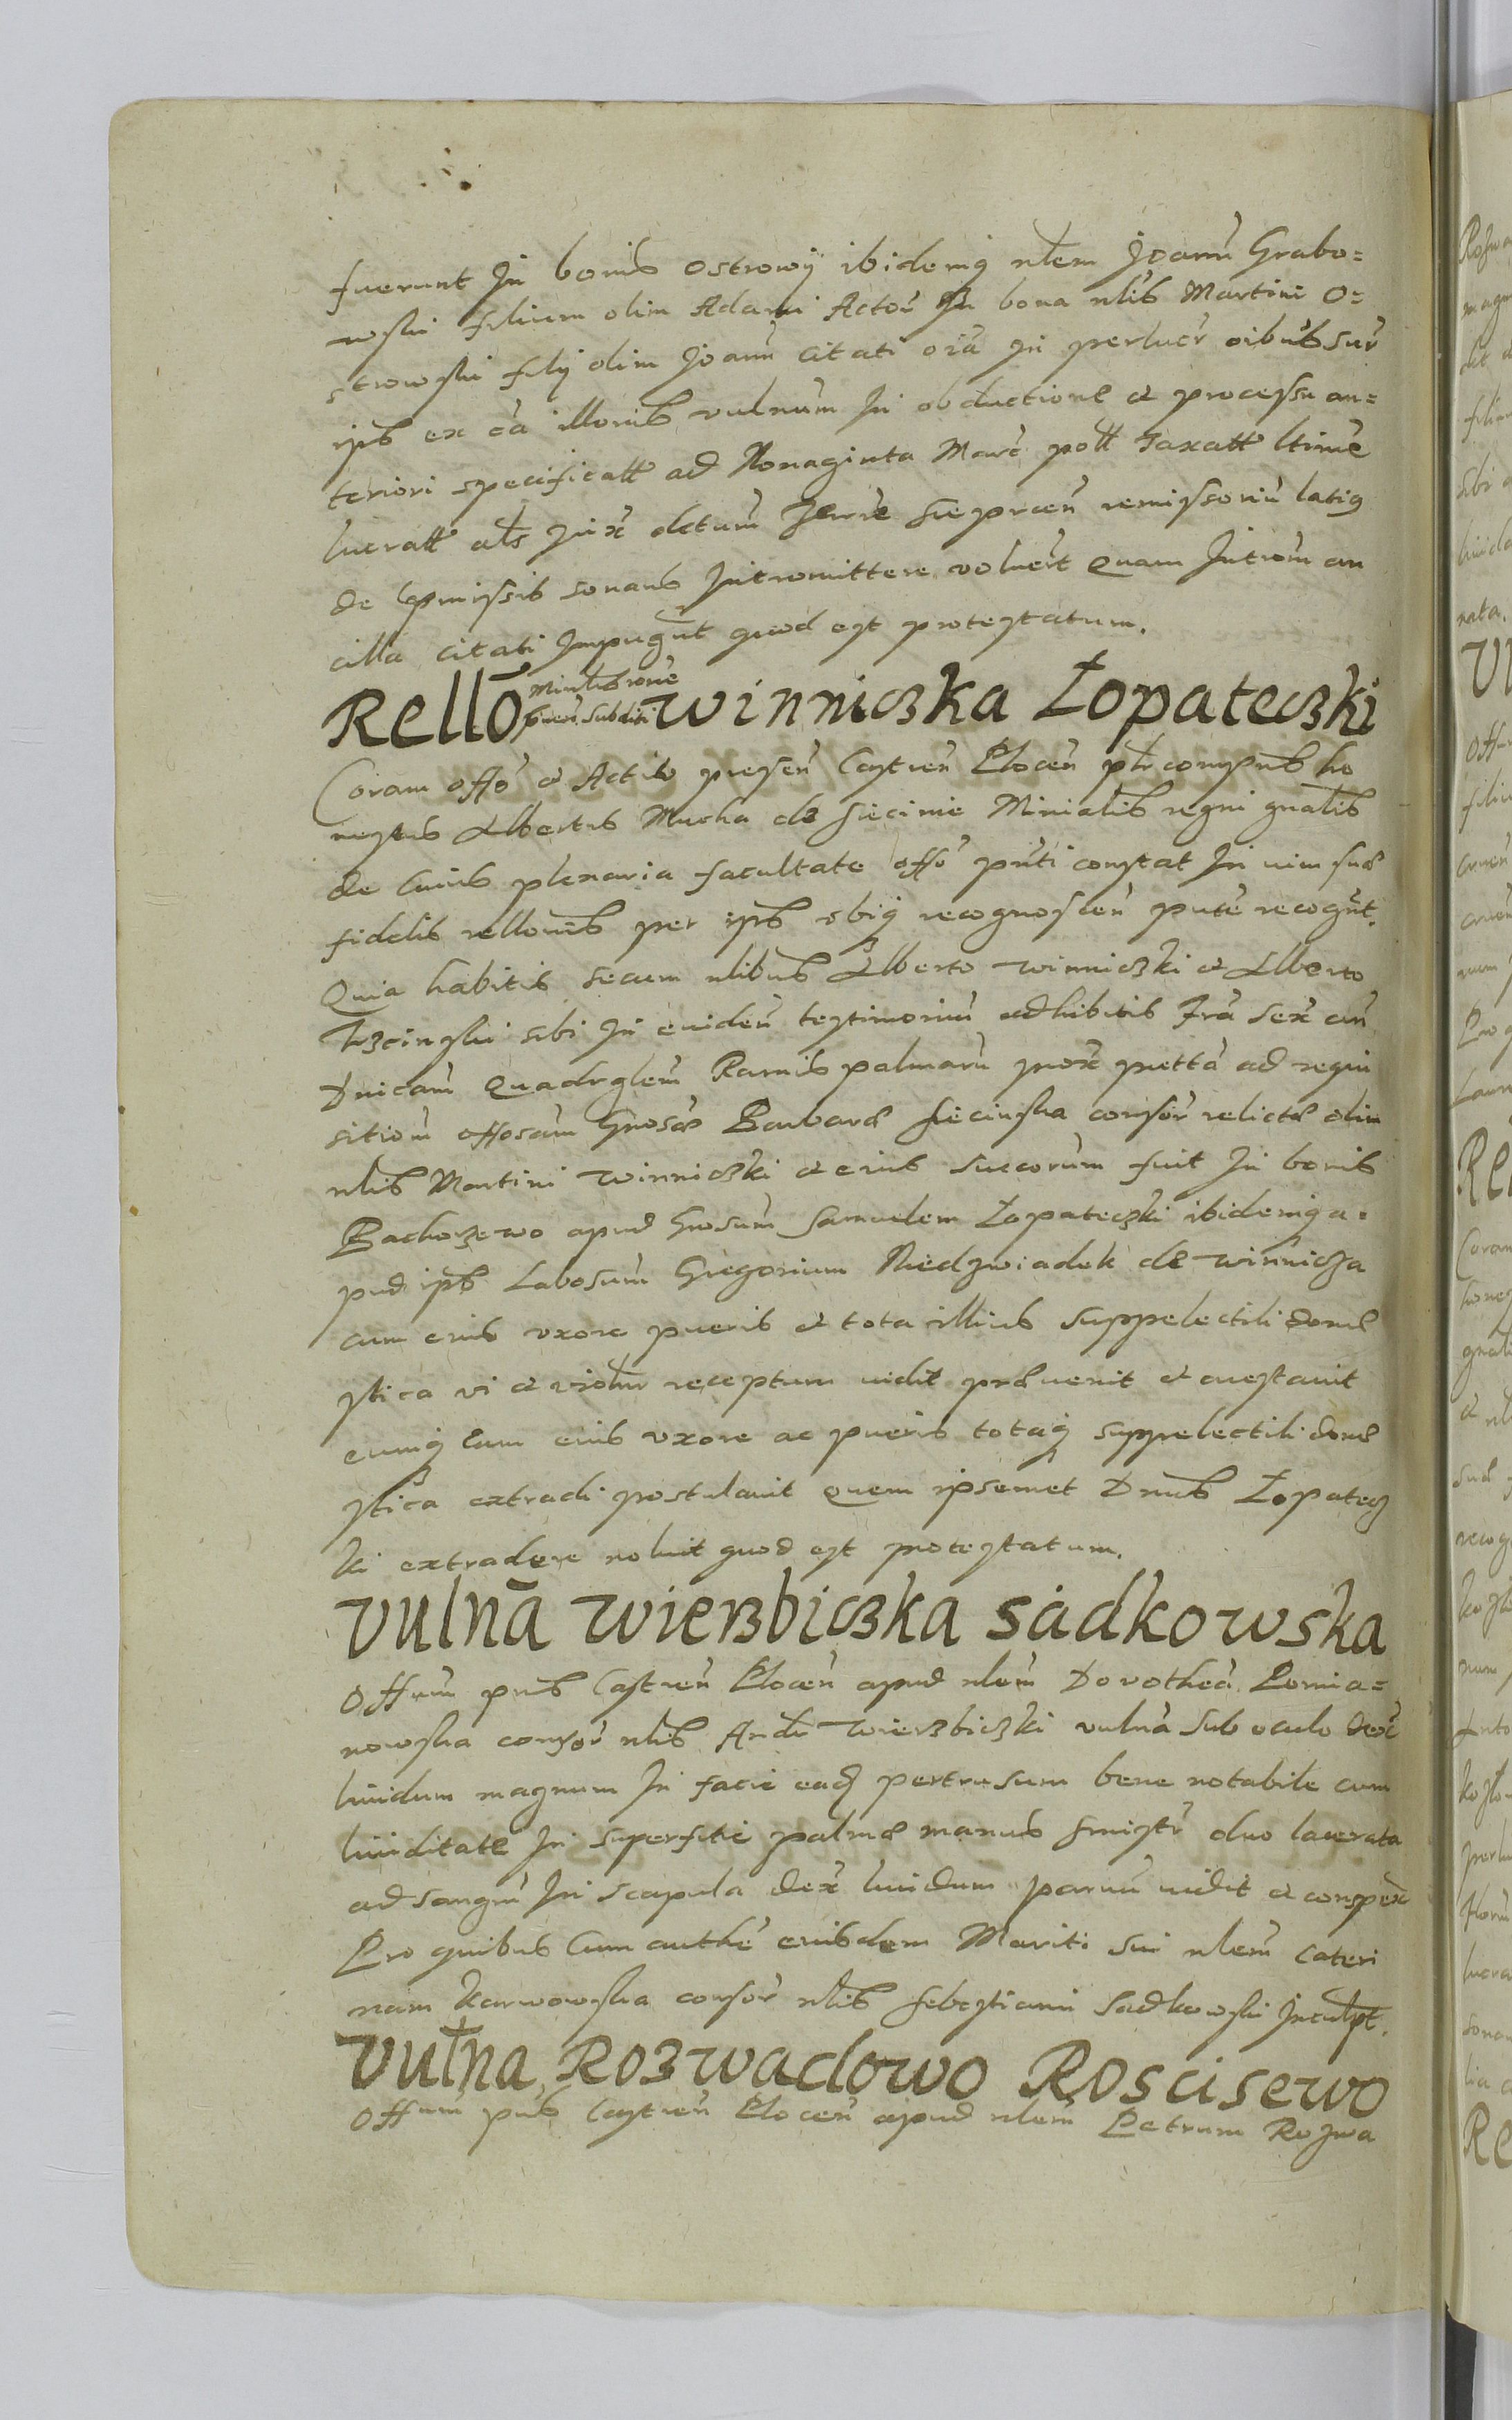 fuerunt In bonis Ostrowÿ ibidemq nlem Joann Grabo=
wski filium olim Adami Actor In bona nlis Martini O=
strowski filÿ olim Joann Citati oia in perlucr oibus sur
ips ex ca illoris vulnum In obductione et processu an=
teriori specificatt ad Nonaginta Marc poll Taxatt ltime
lucratt als Jux dctum Jerrie Sieprcen remissoriu latiq
de pmissis sonans Intromittere voluert Quam Introm an
cilla citati Impugnt quod est protestatum.
Rello Minlis rone pueri Subditi Winniczka Łopateczki
Coram offo et Actis presen Castren Plocen plr comprns ho
nestus Albertus Mucha de Siecinie Minialis regni gnalis
de Cuius plenaria facultate offo pnti constat In vim suæ
fidelis rellonis per ips obÿ recognoscen pute recognt.
Quia habitis secum nlibus Alberto Winniczki et Alberto
Trzcinski sibi In eviden testimoniu adhibitis Fra sex an
Dnicam Quadrglem Ramis palmaru prox pretta ad requi
sitiom offosam Gnosæ Barbaræ Siecinska consor relictæ olim
nlis Martini Winniczki et eius succorum fuit In bonis
Bachorzewo apud Gnosum Samuelem Łopateczki ibidemq a=
pud ips Labosum Gregorium Niedzwiadek de Winnicza
cum eius vxore pueris et tota illius suppelectili dome
stica vi et violtur receptum vidit præuenit et arestauit
eumq Cum eius vxore ac pueris totaq suppelectili dome
stica extradi postulauit Quem ipsemet Dnus Łopatecz
ki extradere noluit quod est protestatum.
Vulna Wierzbiczka Sadkowska
Offum pns Castren Plocen apud nlem Dorothea Pomia=
nowska consor nlis Andr Wierzbiczki vulna Sub oculo dex
liuidum magnum In facie eadz pertusum bene notabile cum
liuiditate In superfitie palmæ manus sinistr duo lacerata
ad sangm In scapula dex liuidum paruu vidit et conspex
Pro quibus Cum authe eiusdem Mariti sui nlem Cateri
nam Karwowska consor nlis Sebestiani Sadkowski Inculpt.
Vulna Rozwadowo Roscisewo
Offum pns Castren Plocen apud nlem Petrum Rozwa